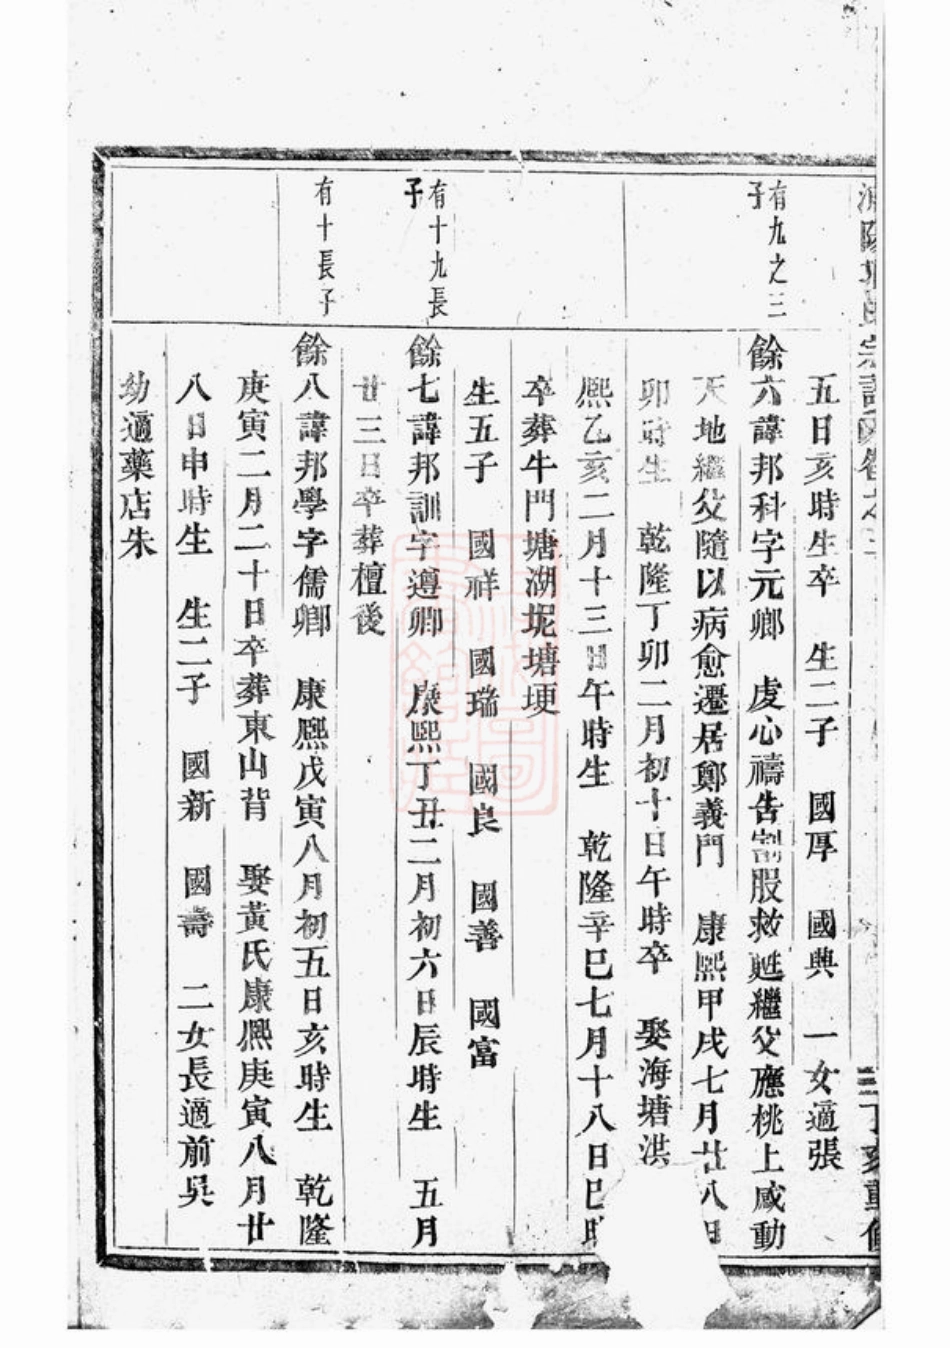 五日亥時生卒　生二子　國厚　國典　一女適張
有九之三
子
餘六諱邦科字元卿　虔心禱告割股救甦繼父應桃上感動
天地繼父隨以病愈遷居鄭義門　康熙甲戌七月廿八日
卯時生　乾隆丁卯二月初十日午時卒　娶海塘洪
熙乙亥二月十三日午時生　乾隆辛巳七月十八日巳時
卒葬牛門塘湖坭塘埂
生五子　國祥　國瑞　國良　國善　國富
有十九長
子
餘七諱邦訓字遵卿　康熙丁丑二月初六日辰時生　五月
廿三日卒葬檀後
有十長子
餘八諱邦學字儒卿　康熙戊寅八月初五日亥時生　乾隆
庚寅二月二十日卒葬東山背　娶黃氏康熙庚寅八月廿
八日申時生　生二子　國新　國壽　二女長適前吳
幼適藥店朱